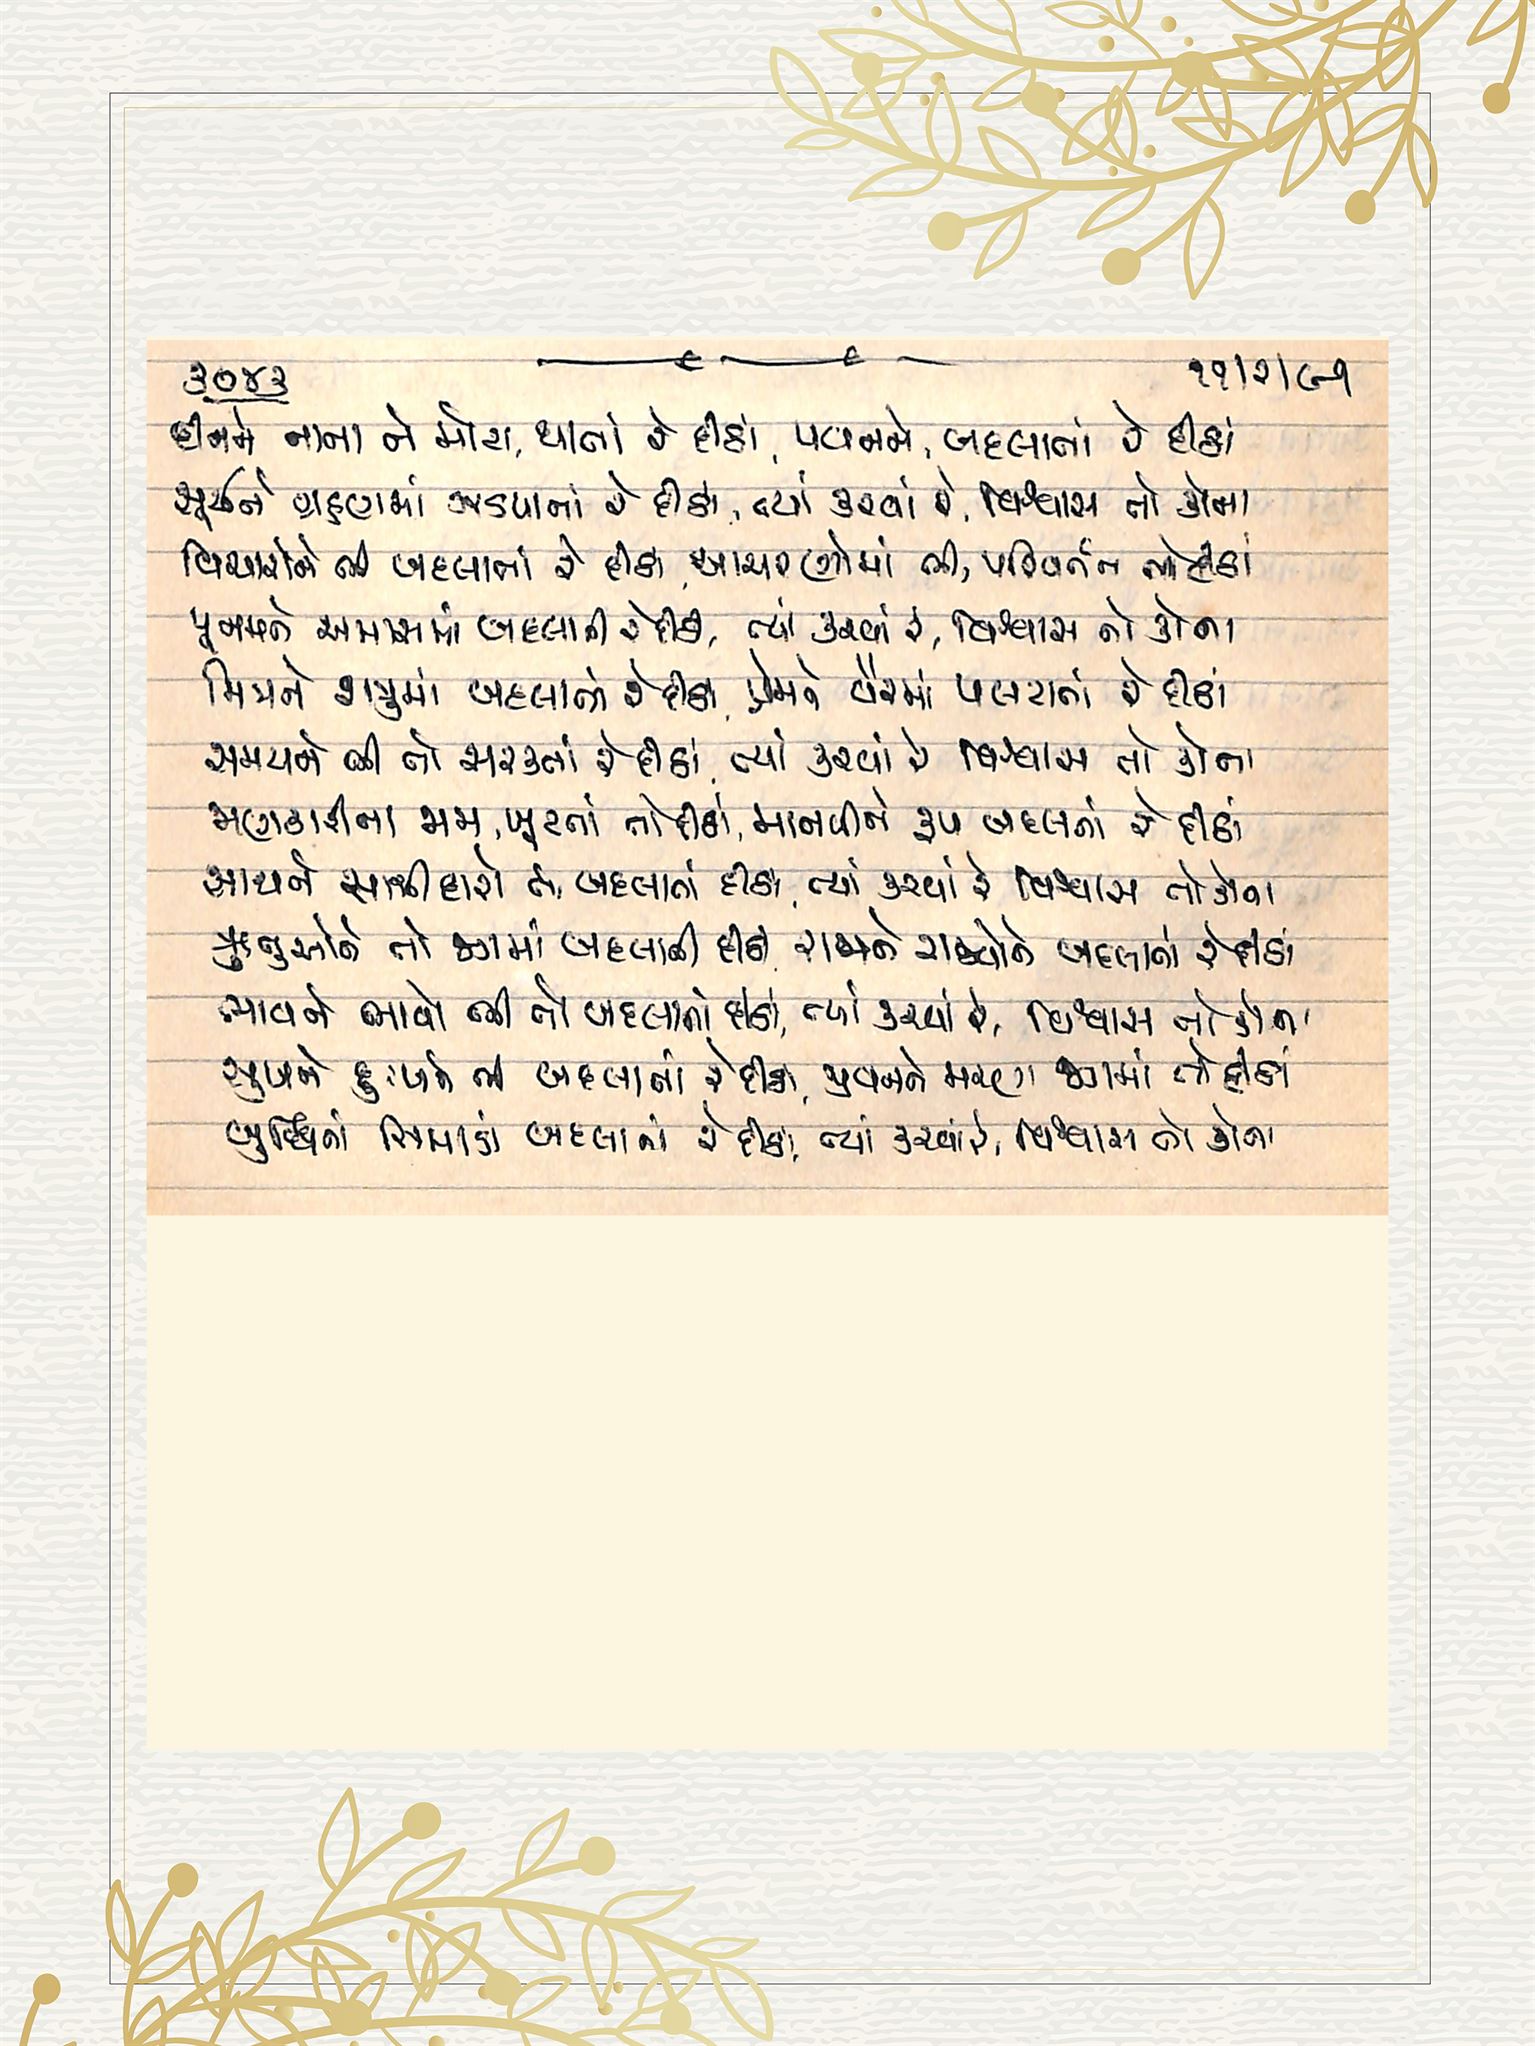 ૩૦૪૩ ૧૧/૨/૯૧
દીનને નાના ને મોટા, થાતાં રે દીઠાં, પવનને, બદલાતાં રે દીઠાં
સૂર્યને ગ્રહણમાં ઝડપાતાં રે દીઠા, ત્યાં કરવાં રે, વિશ્વાસ તો કોના
વિચારોને ભી બદલાતાં રે દીઠા, આચરણોમાં ભી, પરિવર્તન તો દીઠાં
પૂનમને અમાસમાં બદલાતી રે દીઠી, ત્યાં કરવાં રે, વિશ્વાસ તો કોના
મિત્રને શત્રુમાં બદલાતાં રે દીઠા, પ્રેમને વૈરમાં પલટાતાં રે દીઠાં
સમયને ભી તો સરકતાં રે દીઠાં, ત્યાં કરવાં રે વિશ્વાસ તો કોના
મણકારીના મમ, ખૂટતાં તો દીઠાં, માનવીને રૂપ બદલતાં રે દીઠાં
સાથને સાથીદારો તો, બદલાતાં દીઠા, ત્યાં કરવાં રે વિશ્વાસ તો કોના
ઋતુઓને તો જગમાં બદલાતી દીઠી, રાજાને રાજ્યોને બદલાતાં રે દીઠાં
ભાવને ભાવો ભી તો બદલાતાં દીઠાં, ત્યાં કરવાં રે, વિશ્વાસ તો કોના
સુખને દુઃખને ભી બદલાતાં રે દીઠા, જીવનને મરણ જગમાં તો દીઠાં
બુદ્ધિનાં સિમાડાં બદલાતાં રે દીઠા, ત્યાં કરવાં રે, વિશ્વાસ તો કોના